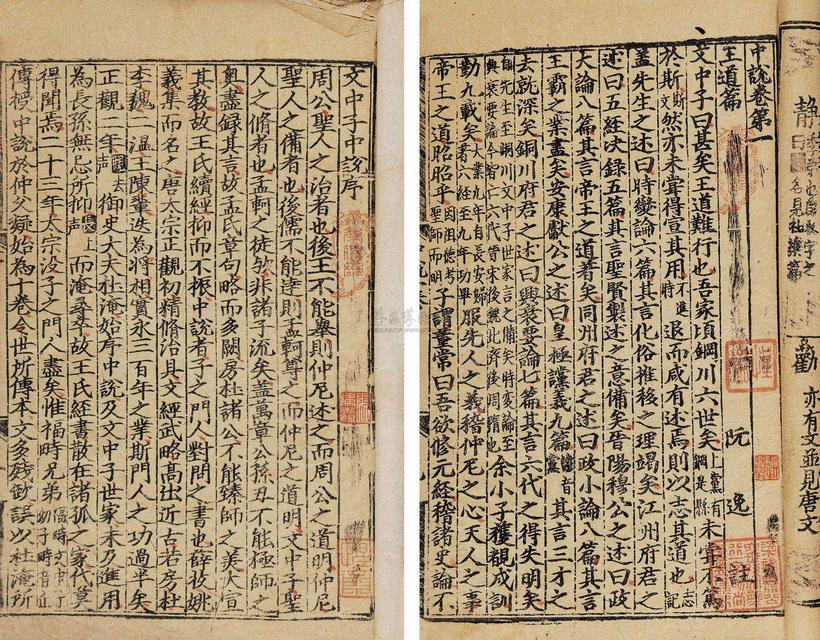 文中子中說序
周公聖人之治者也後王不能舉則仲尼述之而周公之道明仲尼
聖人之備者也後儒不能達則孟軻尊之而仲尼之道明文中子聖
人之脩者也孟軻之徒歟非諸子流矣蓋萬章公孫丑不能極師之
奧盡録其言故孟氏章句略而多闕房杜諸公不能臻師之美大宣
其教故王氏續經抑而不振中說者子之門人對問之書也薛收姚
義集而名之唐太宗正觀初精脩治具文經武略高出近古若房杜
李魏二温王陳輩迭為將相實永三百年之業斯門人之功過半矣
正觀二年御史大夫杜淹始序中說及文中子世家未及進用
為長孫無忌所抑而淹尋卒故王氏經書散在諸孤之家代莫
得聞焉二十三年太宗没子之門人盡矣惟福畤兄弟福畤文中子幼子畤音止
傳授中說於仲父凝始為十卷今世所傳本文多殘缺誤以杜淹所
亦有文並見唐文
中說卷第一
王道篇 阮逸註
文中子曰甚矣王道難行也吾家頃銅川六世矣上黨有銅川縣未嘗不篤
於斯斯文然亦未嘗得宣其用不進時退而咸有述焉則以志其道也志記
蓋先生之述曰時變論六篇其言化俗推移之理竭矣江州府君之
述曰五經決録五篇其言聖賢製述之意備矣晉陽穆公之述曰政
大論八篇其言帝王之道著矣同州府君之述曰政小論八篇其言
王霸之業盡矣安康獻公之述曰皇極讜義九篇其言三才之
去就深矣銅川府君之述曰興衰要論七篇其言六代之得失明矣
余小子獲覩成訓
勤九載矣服先人之義稽仲尼之心天人之事
帝王之道昭昭乎子謂董常曰吾欲修元經稽諸史論不